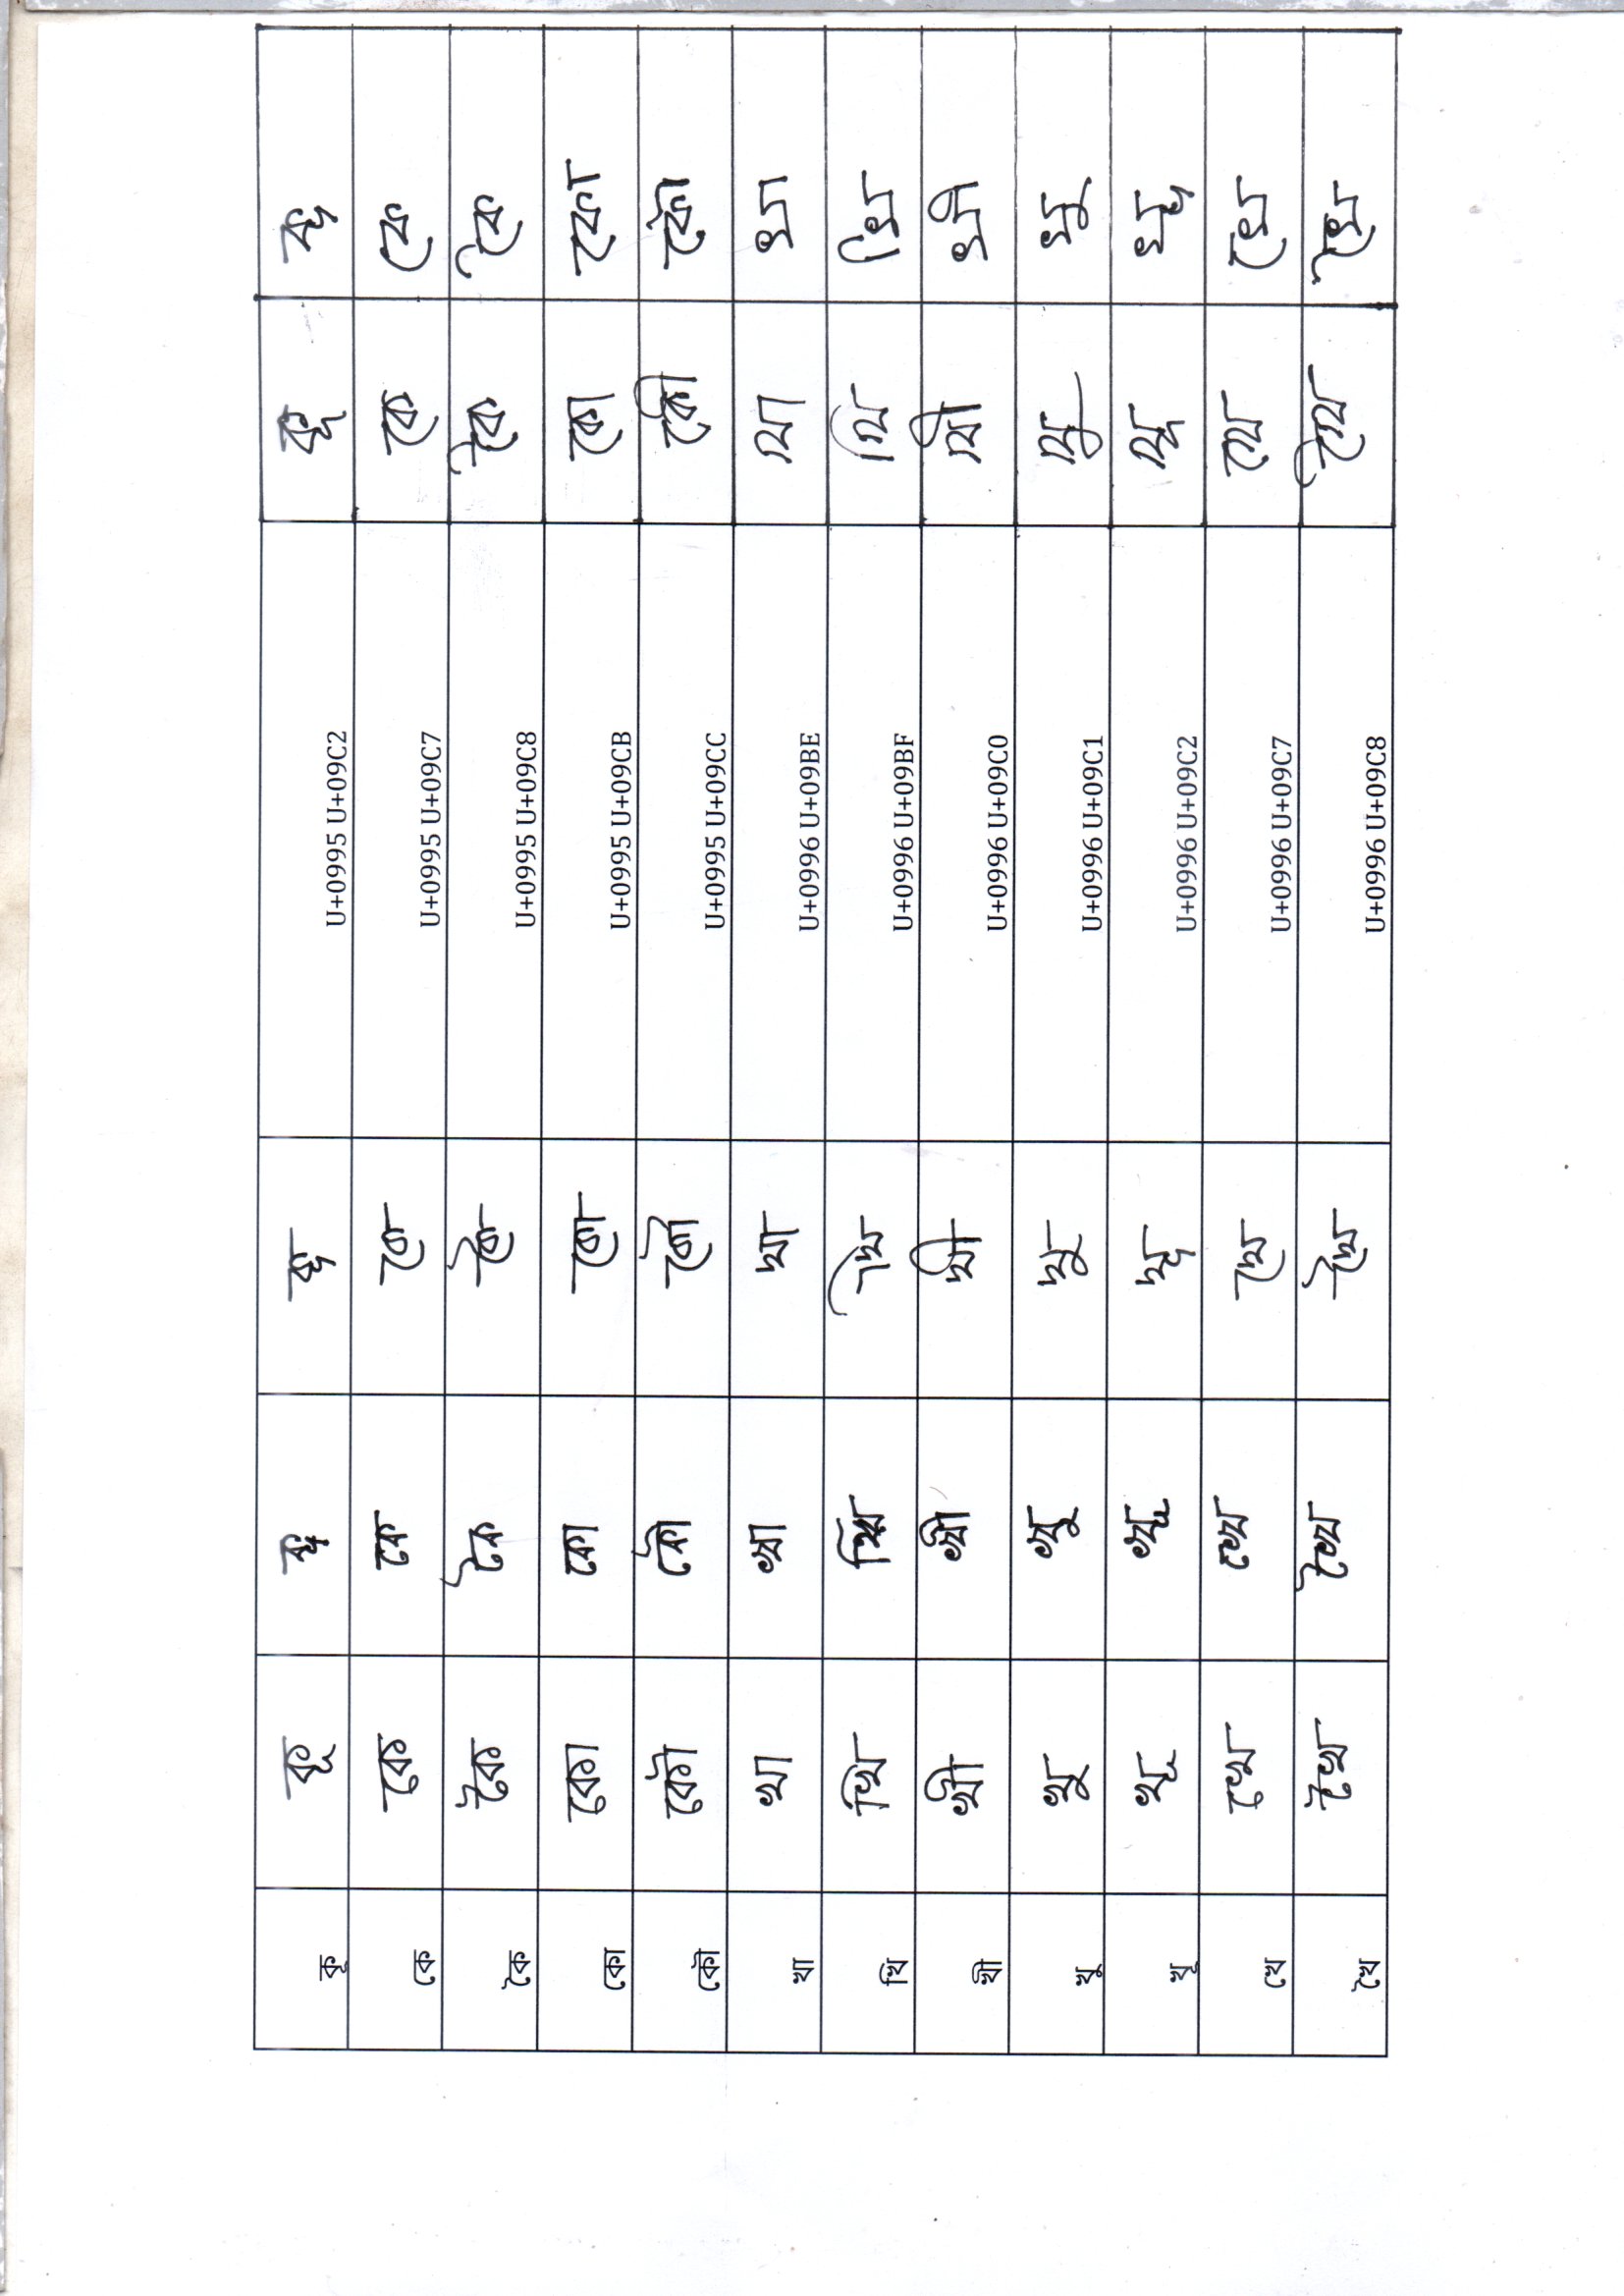 কূ কূ কূ কূ U+0995 U+09C2 কূ কূ
কে কে কে কে U+0995 U+09C7 কে কে
কৈ কৈ কৈ কৈ U+0995 U+09C8 কৈ কৈ
কো কো কো কো U+0995 U+09CB কো কো
কৌ কৌ কৌ কৌ U+0995 U+09CC কৌ কৌ
খা খা খা খা U+0996 U+09BE খা খা
খি খি খি খি U+0996 U+09BF খি খি
খী খী খী খী U+0996 U+09C0 খী খী
খু খু খু খু U+0996 U+09C1 খু খু
খূ খূ খূ খূ U+0996 U+09C2 খূ খূ
খে খে খে খে U+0996 U+09C7 খে খে
খৈ খৈ খৈ খৈ U+0996 U+09C8 খৈ খৈ